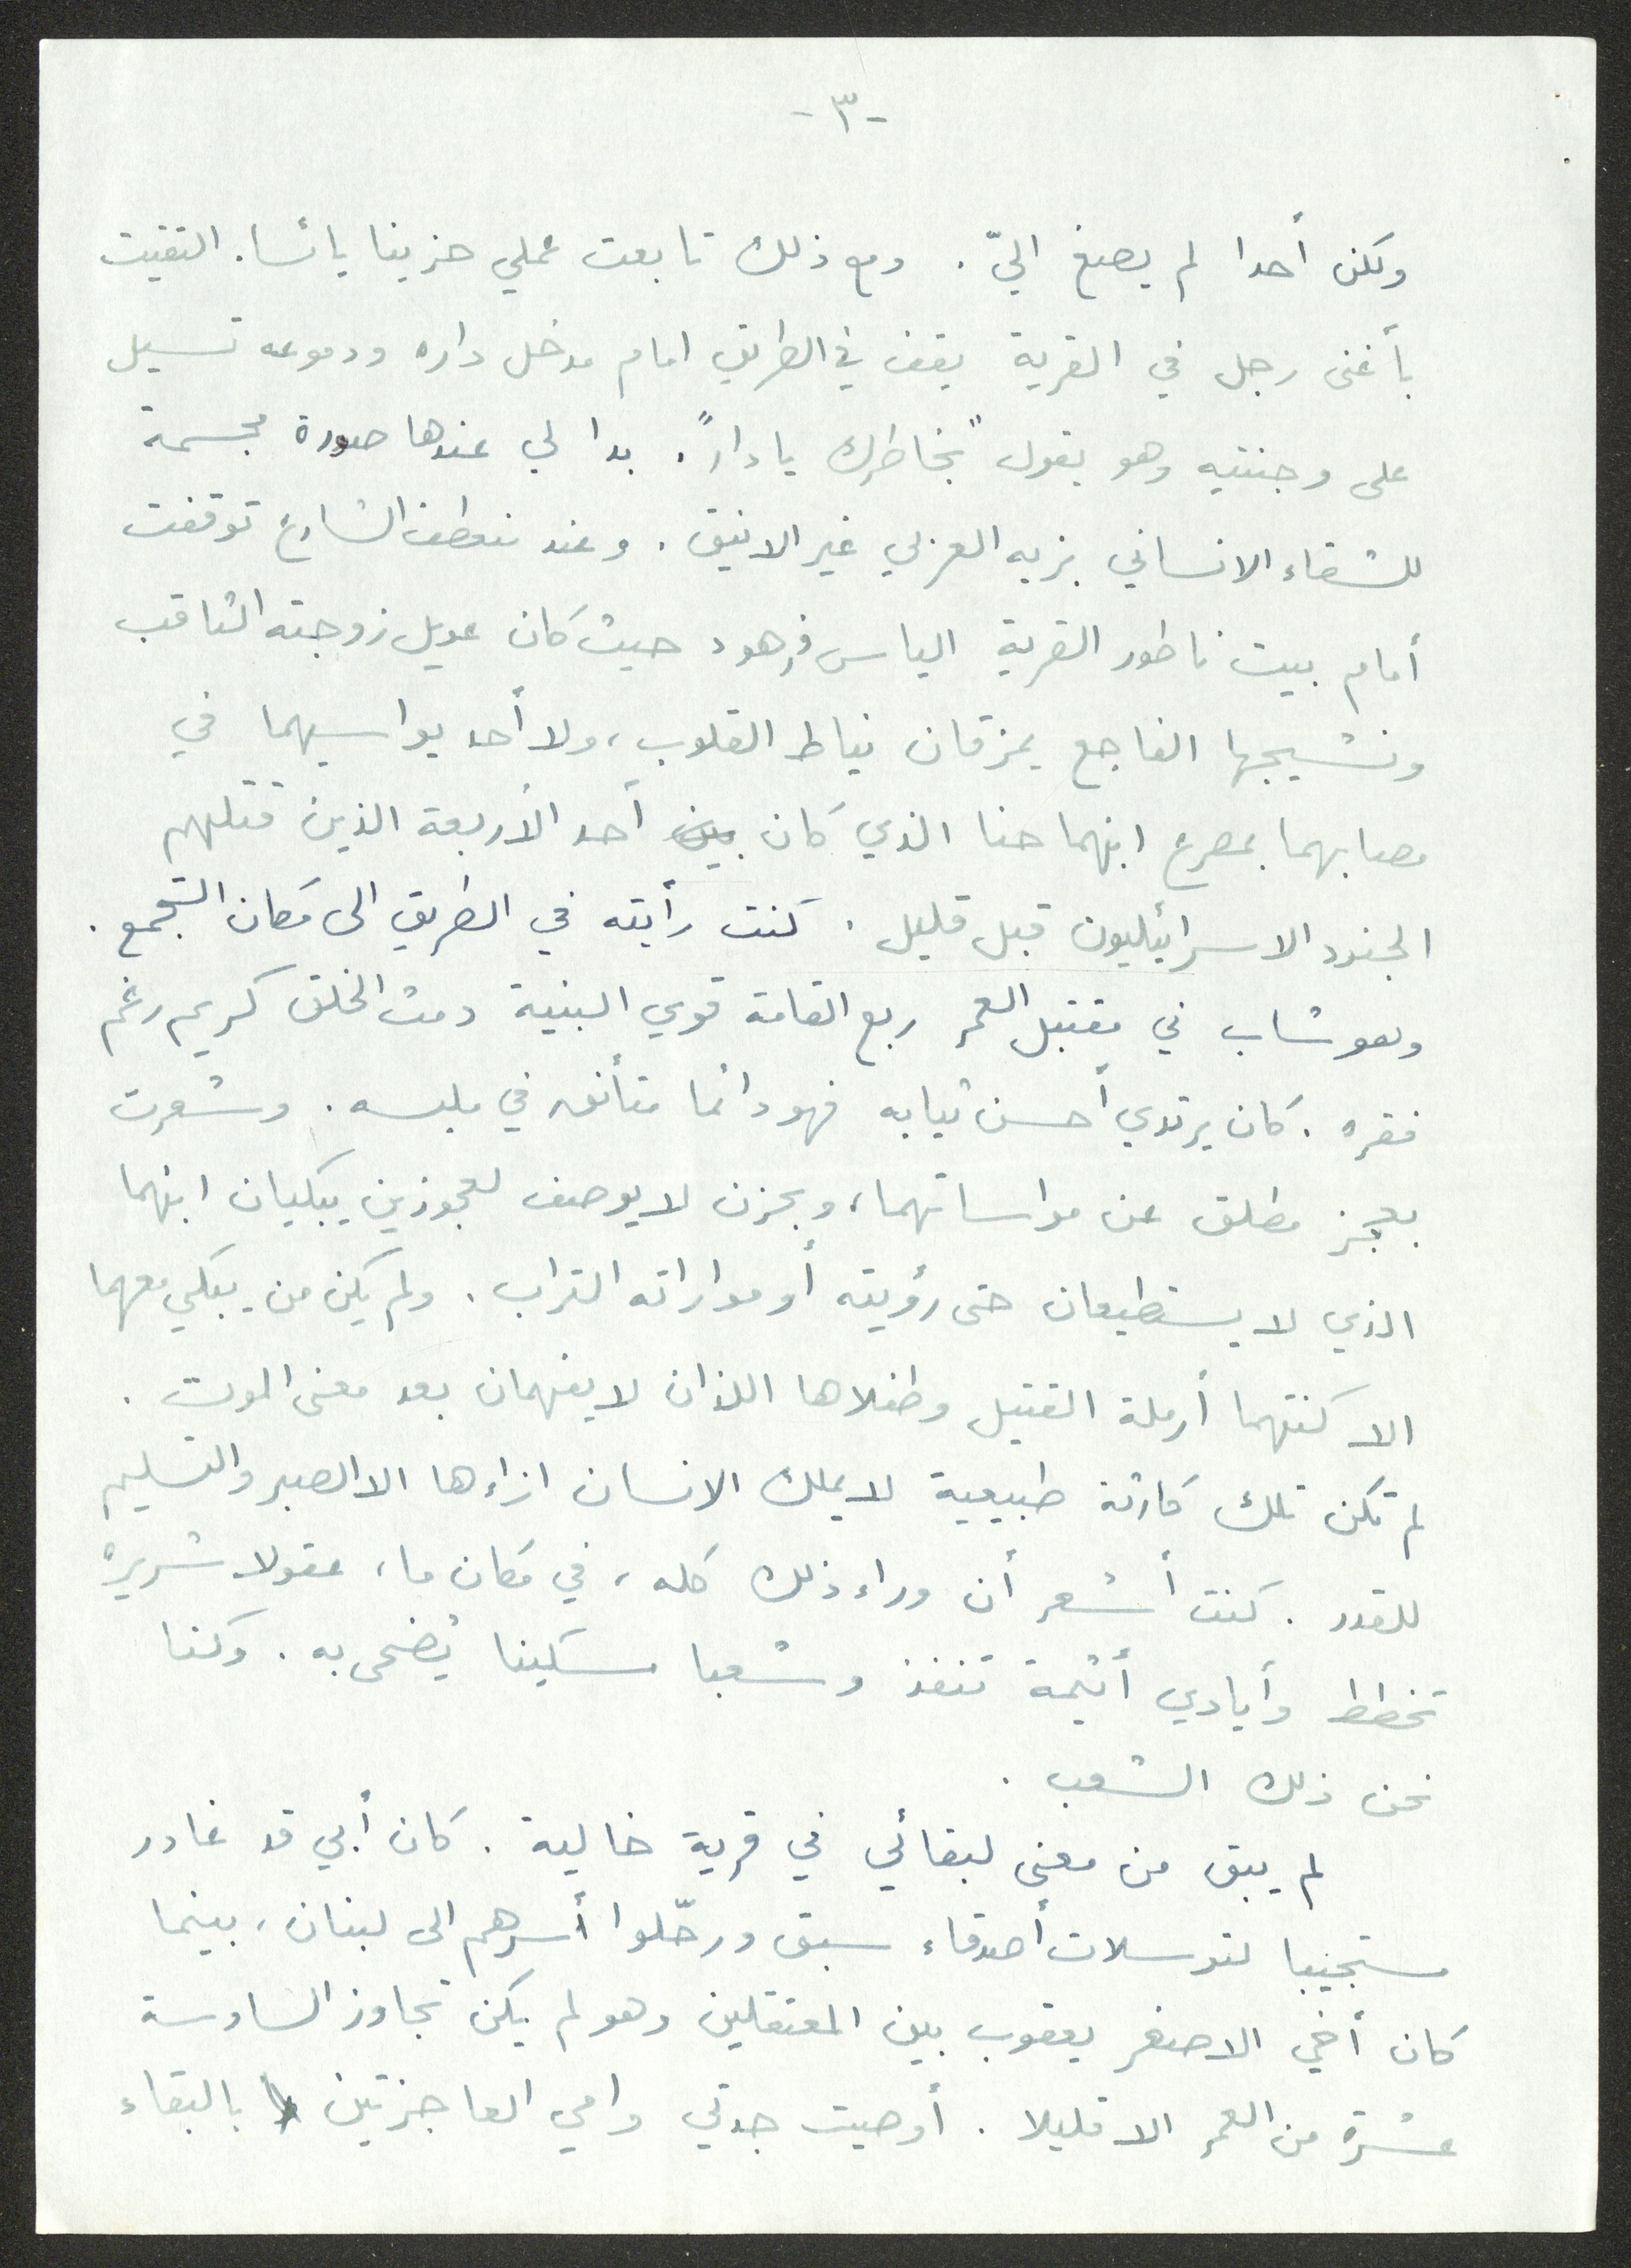 -٣-
ولكن أحدا لم يصغ اليّ. ومع ذلك تابعت عملي حزينا يائسا. التقيت
بأغنى رجل في القرية يقف في الطريق امام مدخل داره ودموعه تسيل
على وجنتيه وهو يقول "بخاطرك يا دار". بدا لي عندها صورة مجسمة
للشقاء الانساني بزيه العربي غير الانيق. وعند منعطف الشارع توقفت
أمام بيت ناطور القرية الياس فرهود حيث كان عويل زوجته الثاقب
ونشيجها الفاجع يمزقان نياط القلوب، ولا أحد يواسيهما في
مصابهما بمصرع ابنهما حنا الذي كان بين أحد الأربعة الذين قتلهم
الجنود الاسرائيليون قبل قليل. كنت رأيته في الطريق الى مكان التجمع.
وهو شاب في مقتبل العمر ربع القامة قوي البنية دمث الخلق كريم رغم
فقره. كان يرتدي أحسن ثيابه فهو دائما متأنق في ملبسه. وشعرت
بعجز مطلق عن مواساتهما، وبحزن لا يوصف لعجوزين يبكيان ابنهما
الذي لا يستطيعان حتى رؤيته أو مواراته التراب. ولم يكن من يبكي معهما
الا كنتهما أرملة القتيل وطفلاها اللذان لا يفهمان بعد معنى الموت.
لم تكن تلك كارثة طبيعية لا يملك الانسان ازاءها الا الصبر والتسليم
للقدر. كنت أشعر أن وراء ذلك كله، في مكان ما، عقولا شريرة
تخطط وأيادي أثيمة تنفذ وشعبا مسكينا يُضحى به. وكنا
نحن ذلك الشعب.
لم يبق من معنى لبقائي في قرية خالية. كان أبي قد غادر
مستجيبا لتوسلات أصدقاء سبق ورحّلوا أسرهم الى لبنان، بينما
كان أخي الاصغر يعقوب بين المعتقلين وهو لم يكن تجاوز السادسة
عشرة من العمر الا قليلا. أوصيت جدتي وامي العاجزتين بالبقاء